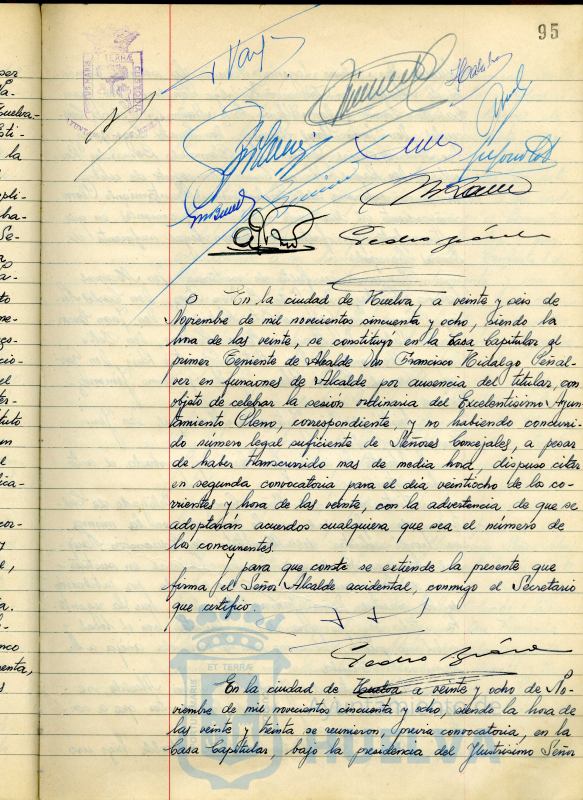 95
Pedro
En la ciudad de Huelva, a veinte y seis de
Noviembre de mil novecientos cincuenta y ocho, siendo la
hora de las veinte, se constituyó en la Casa Capitular el
primer Teniente de Alcalde Don Francisco Hidalgo Peñal-
ver en funciones de Alcalde por ausencia del titular, con
objeto de celebrar la sesión ordinaria del Excelentísimo Ayun-
tamiento Pleno, correspondiente, y no habiendo concurri-
do número legal suficiente de Señores Concejales, a pesar
de haber transcurrido mas de media hora, dispuso citar
en segunda convocatoria para el día veintiocho de los co-
rrientes y hora de las veinte, con la advertencia, de que se
adoptarán acuerdos cualquiera que sea el número de
los concurrentes.
Y para que conste se extiende la presente que
firma el Señor Alcalde accidental, conmigo el Secretario
que certifico.
Pedro
ET TERRÆ
En la ciudad de Huelva a veinte y ocho de No-
viembre de mil novecientos cincuenta y ocho, siendo la hora de
las veinte y treinta se reunieron, previa convocatoria, en la
Casa Capitular, bajo la presidencia del Ilustrísimo Señor